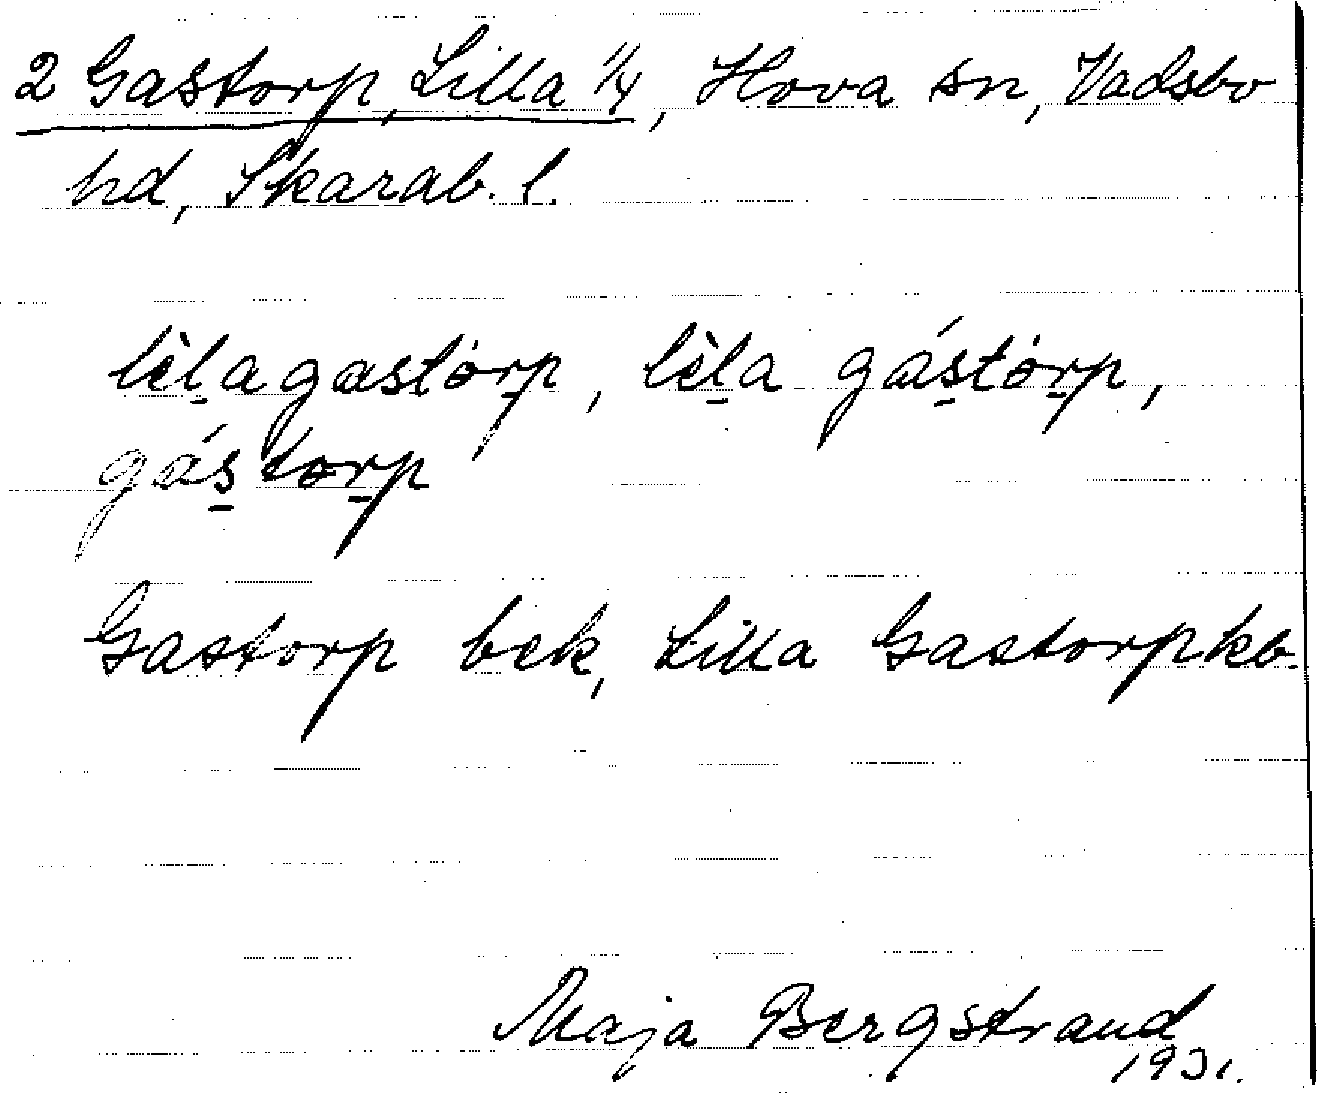 2 Gastorp, Lilla 1/4, Hova sn, Vadsbo
hd, Skarab. l.
lèl̠agastòr̠p, lèl̠a gás̠tòr̠p,
gás̠tor̠p
Gastorp bek, Lilla Gastorp kb.
Maja Bergstrand
1931.